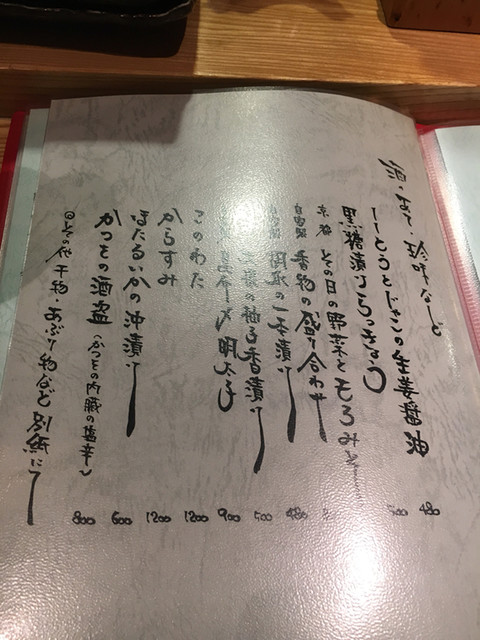 酒のあて・珍味など
ししとうとじゃこの生姜醤油 480
黒糖漬けらっきょう 500
京都 その日の野菜ともろみ
自家製 香物の盛り合わせ 480
の一本漬け 500
の柚子香漬け
昆布〆明太子 900
このわた 1200
からすみ 1200
ほたるいかの沖漬け 600
かつをの酒盗(かつをの内臓の塩辛) 800
◎その他 干物・あぶり物など別紙にて